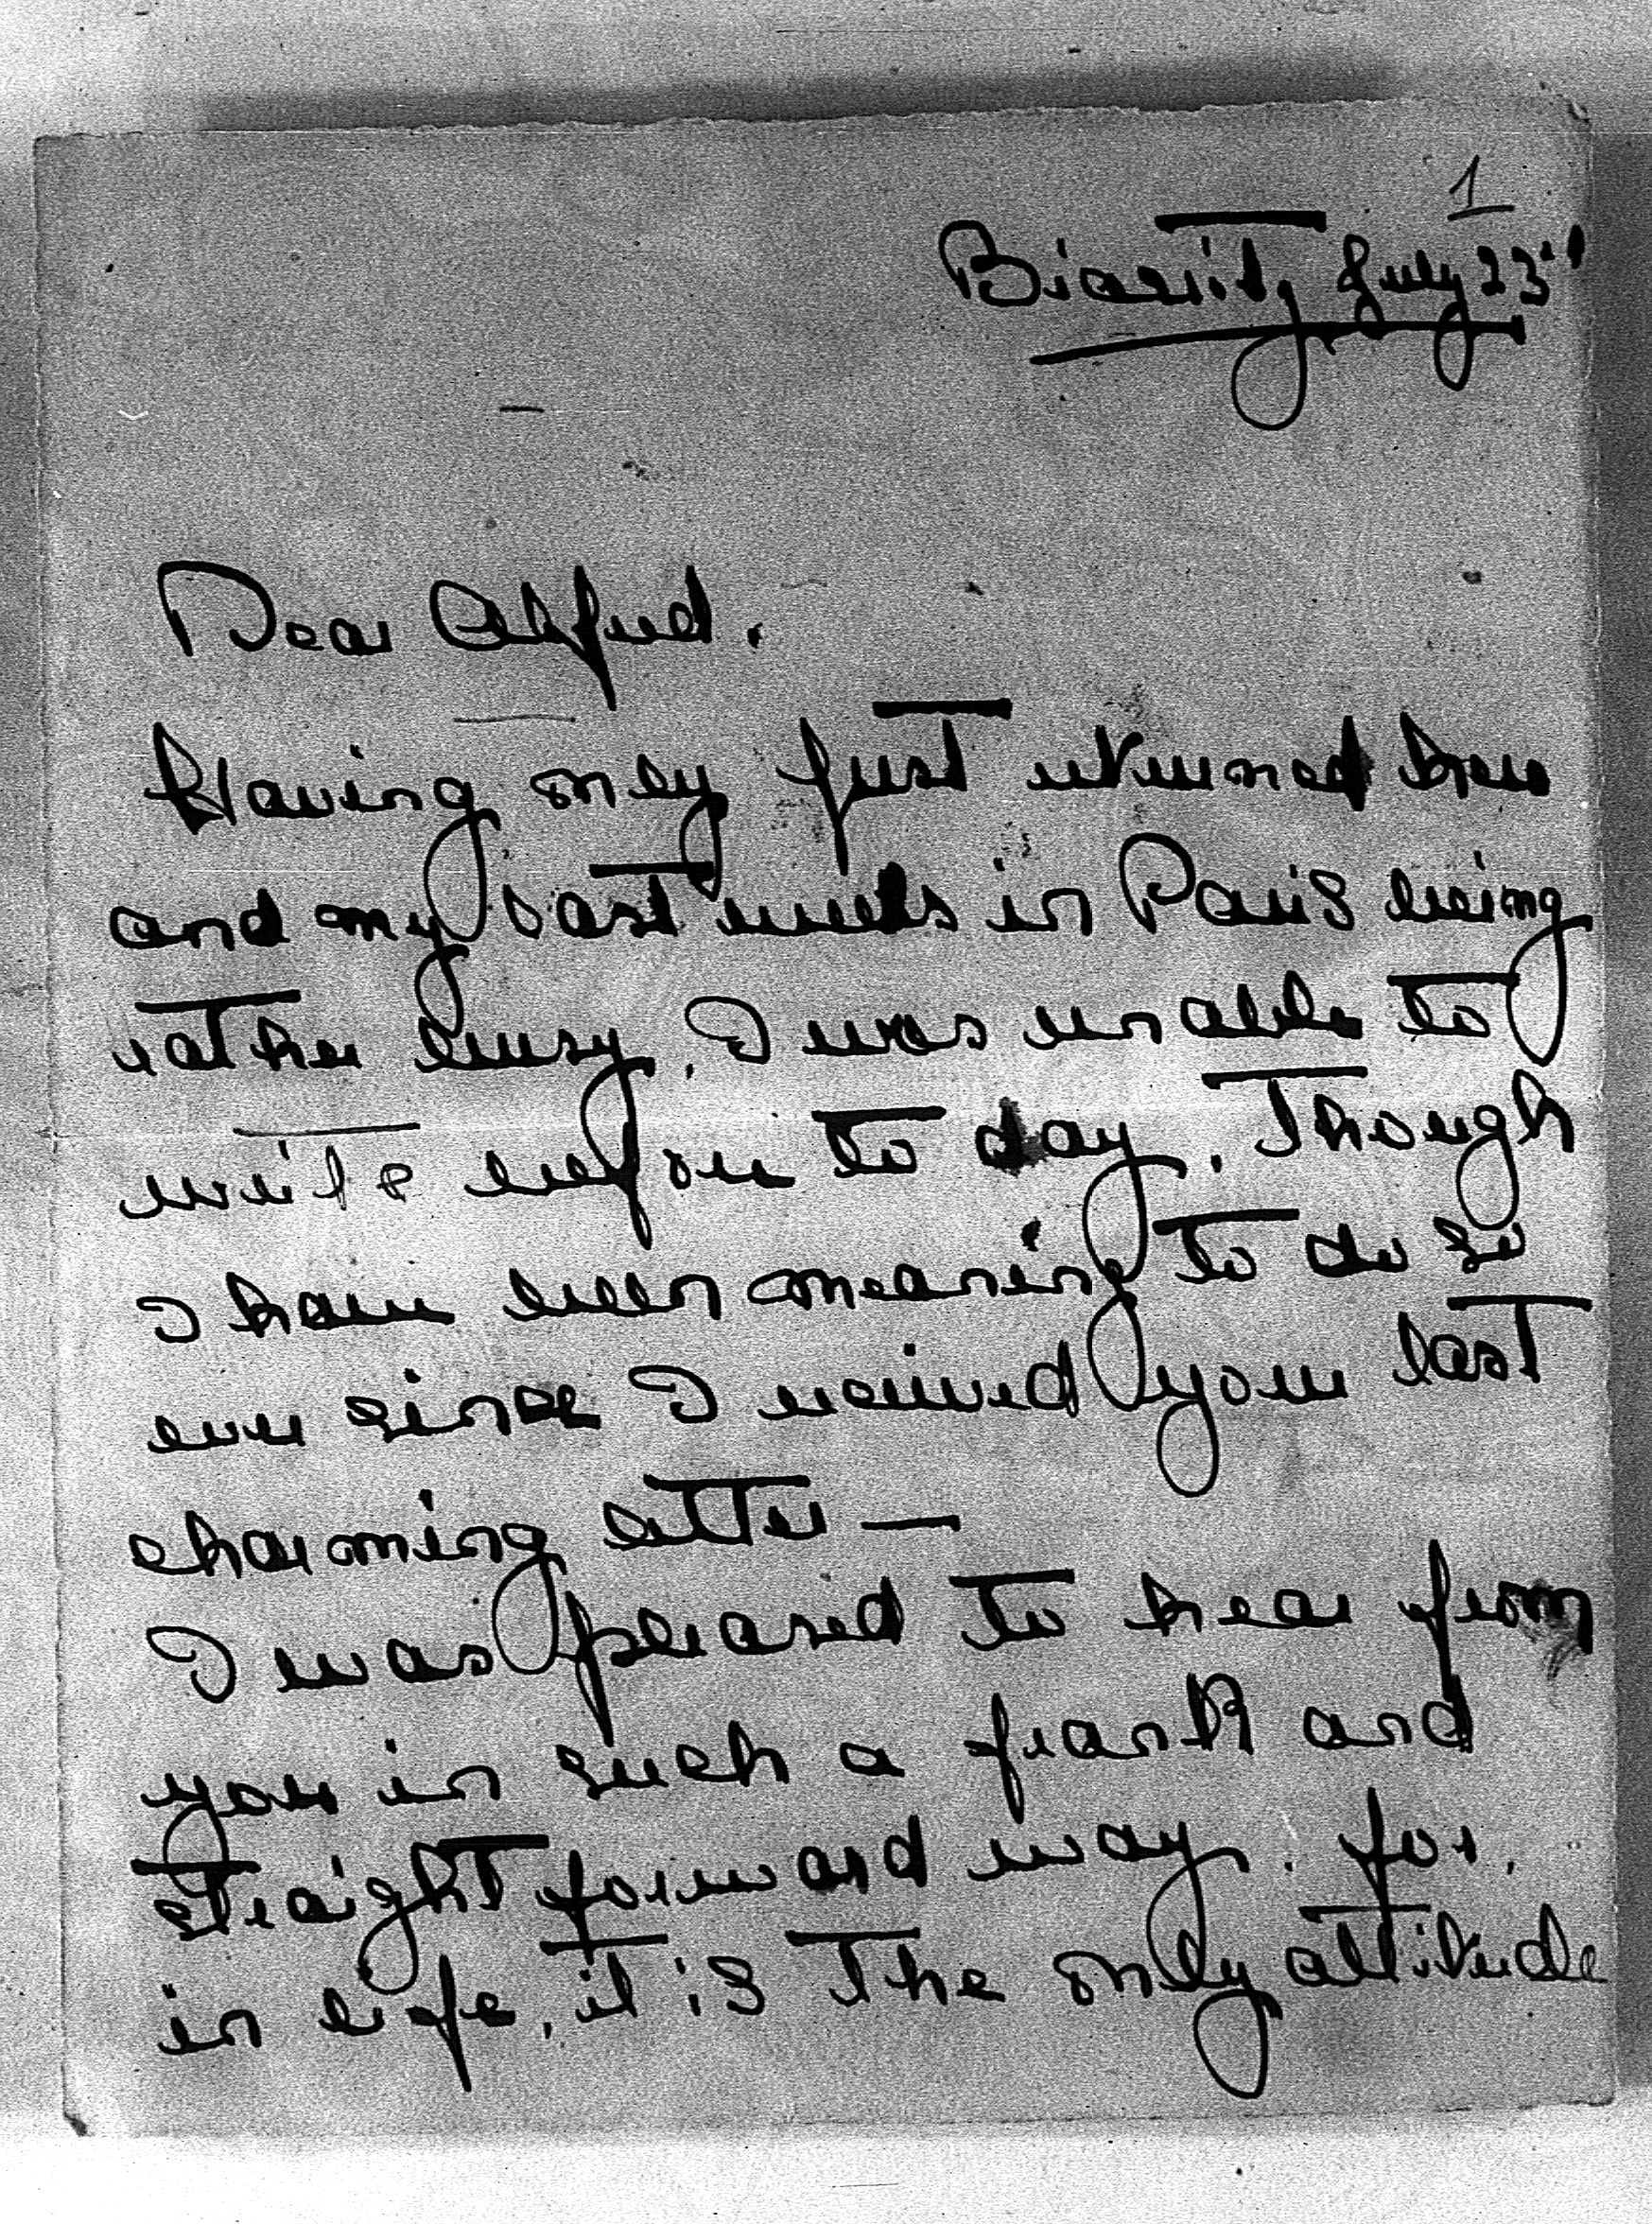 1
Biarritz July 23rd
Dear Alfred.
Having only just returned here
and my last weeks in Paris being
rather busy, I was unable to
write before to day. Though
I have been meaning to do so
ever since I received your last
charming letter —
I was pleased to hear from
you in such a frank and
straight forward way. for,
in life, it is the only attitude